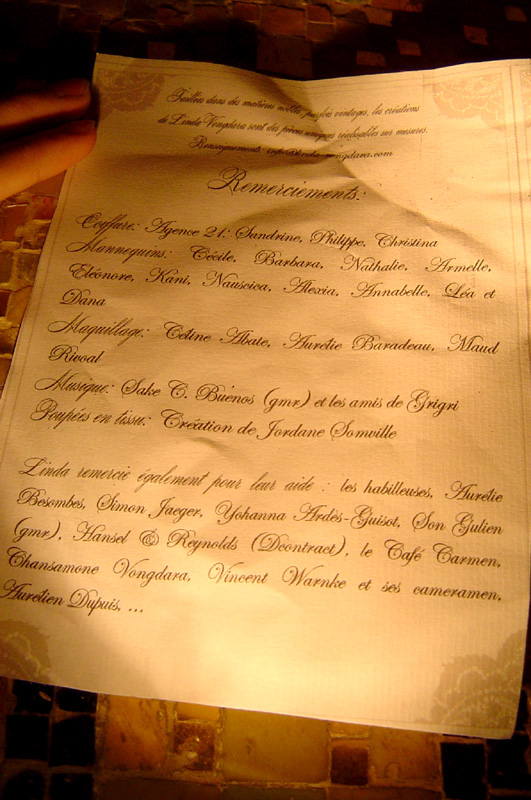 Taillées dans des matières nobles parfois vintages, les créations
de Linda Vongdara sont des pièces uniques réalisables sur mesures.
Renseignements: vongdara.com
Remerciements:
Coiffure: Agence 21: Sandrine, Philippe, Christina
Mannequins: Cécile, Barbara, Nathalie, Armelle,
Eléonore, Kani, Nausicca, Alexia, Annabelle, Léa et
Dana
Maquillage: Céline Abate, Aurélie Baradeau, Maud
Rivoal
Musique: Sake C. Buenos (gmr) et les amis de Grigri
Poupées en tissu: Création de Jordane Somville
Linda remercie également pour leur aide : les habilleuses, Aurélie
Besombes, Simon Jaeger, Yohanna Ardès-Guisot, Son Gulien
(gmr), Hansel & Reynolds (Dcontract), le Café Carmen,
Chansamone Vongdara, Vincent Warnke et ses cameramen,
Aurélien Dupuis, ...